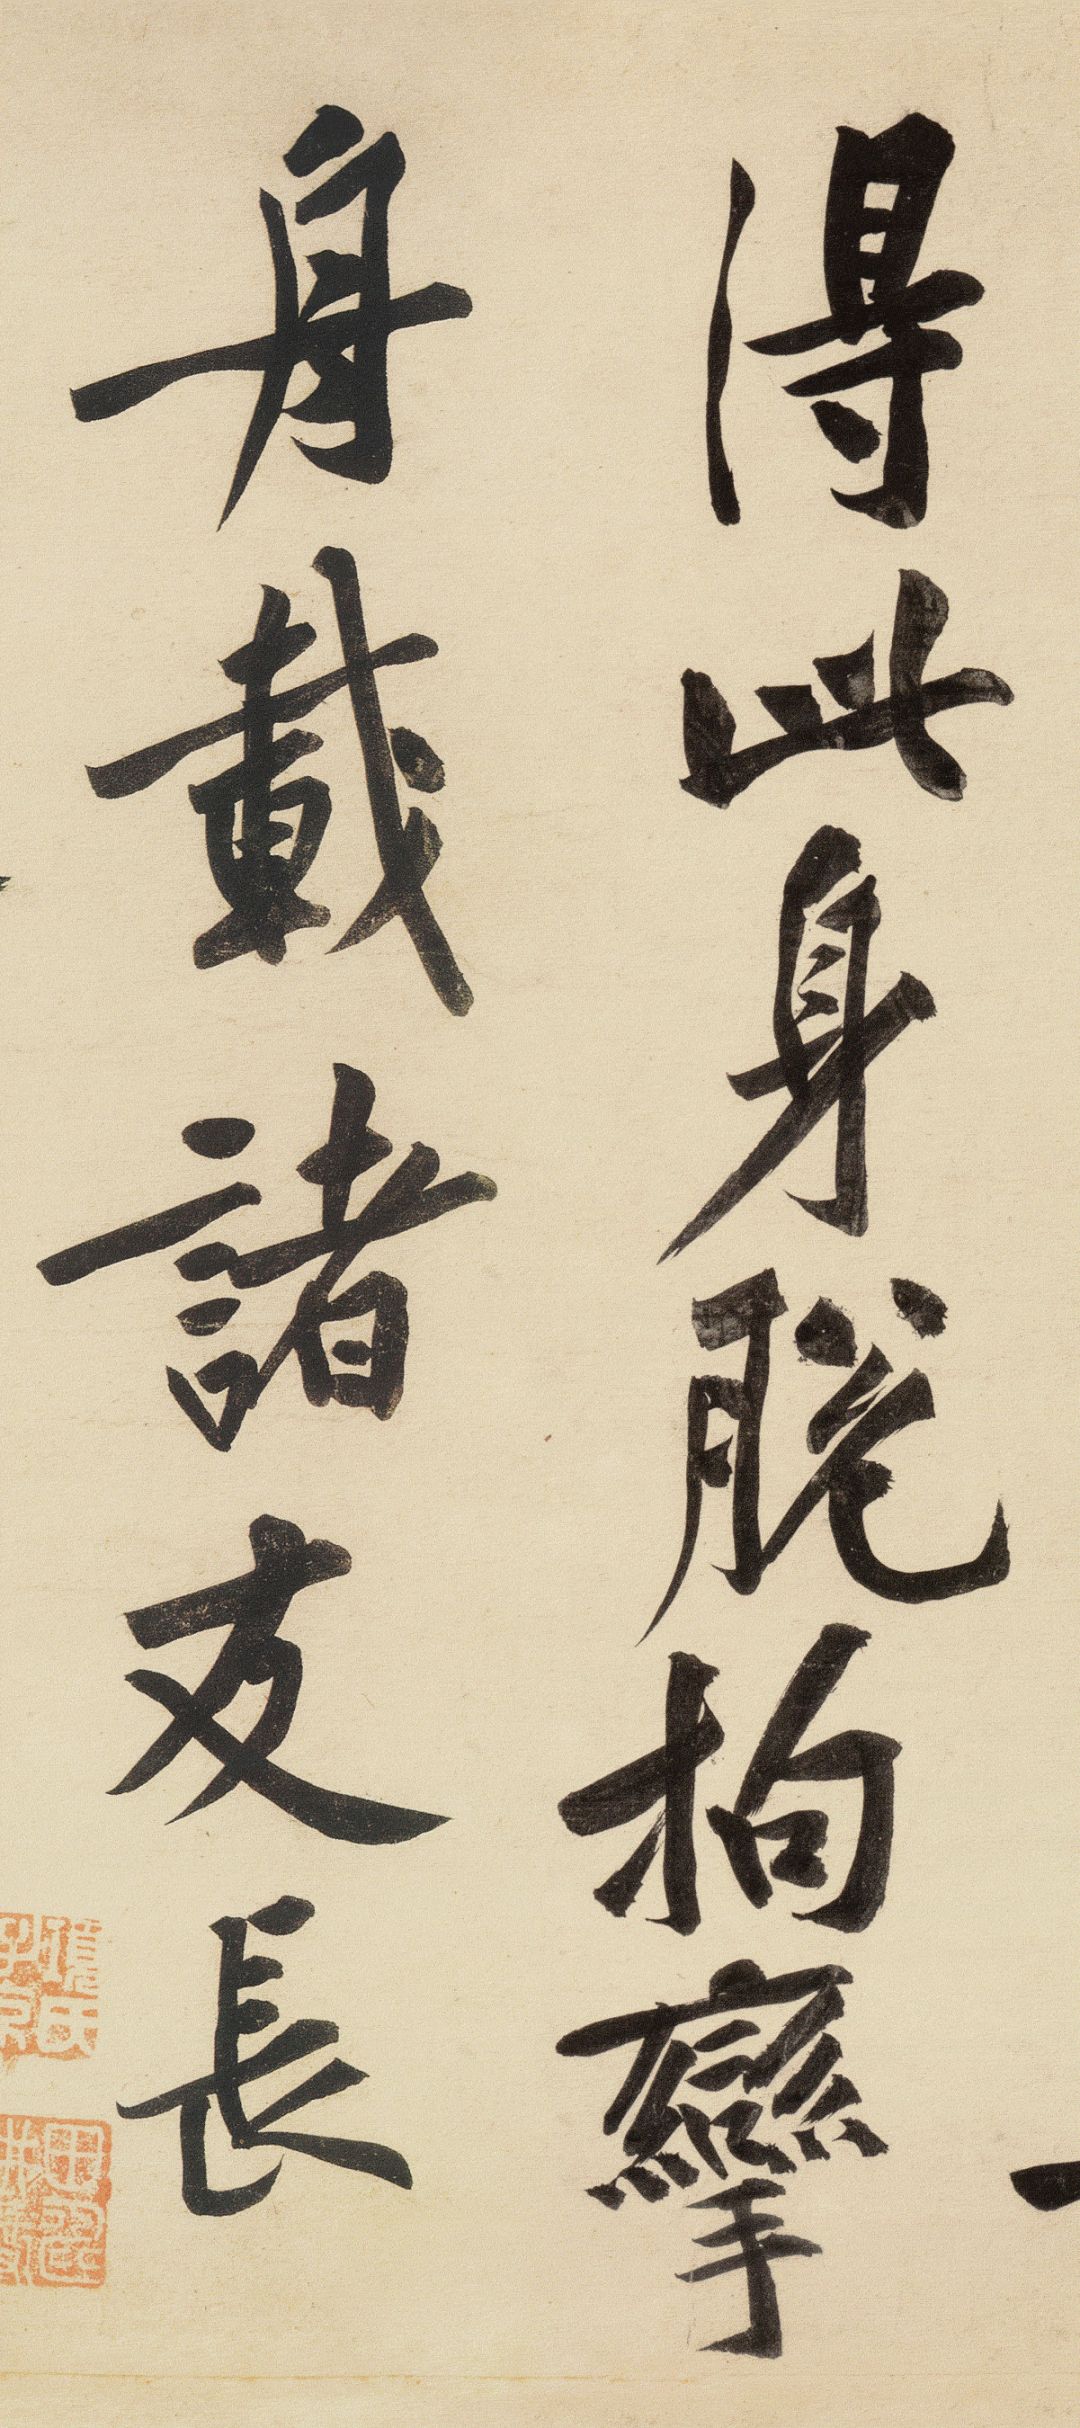 得此身脫拘攣
舟載諸友長